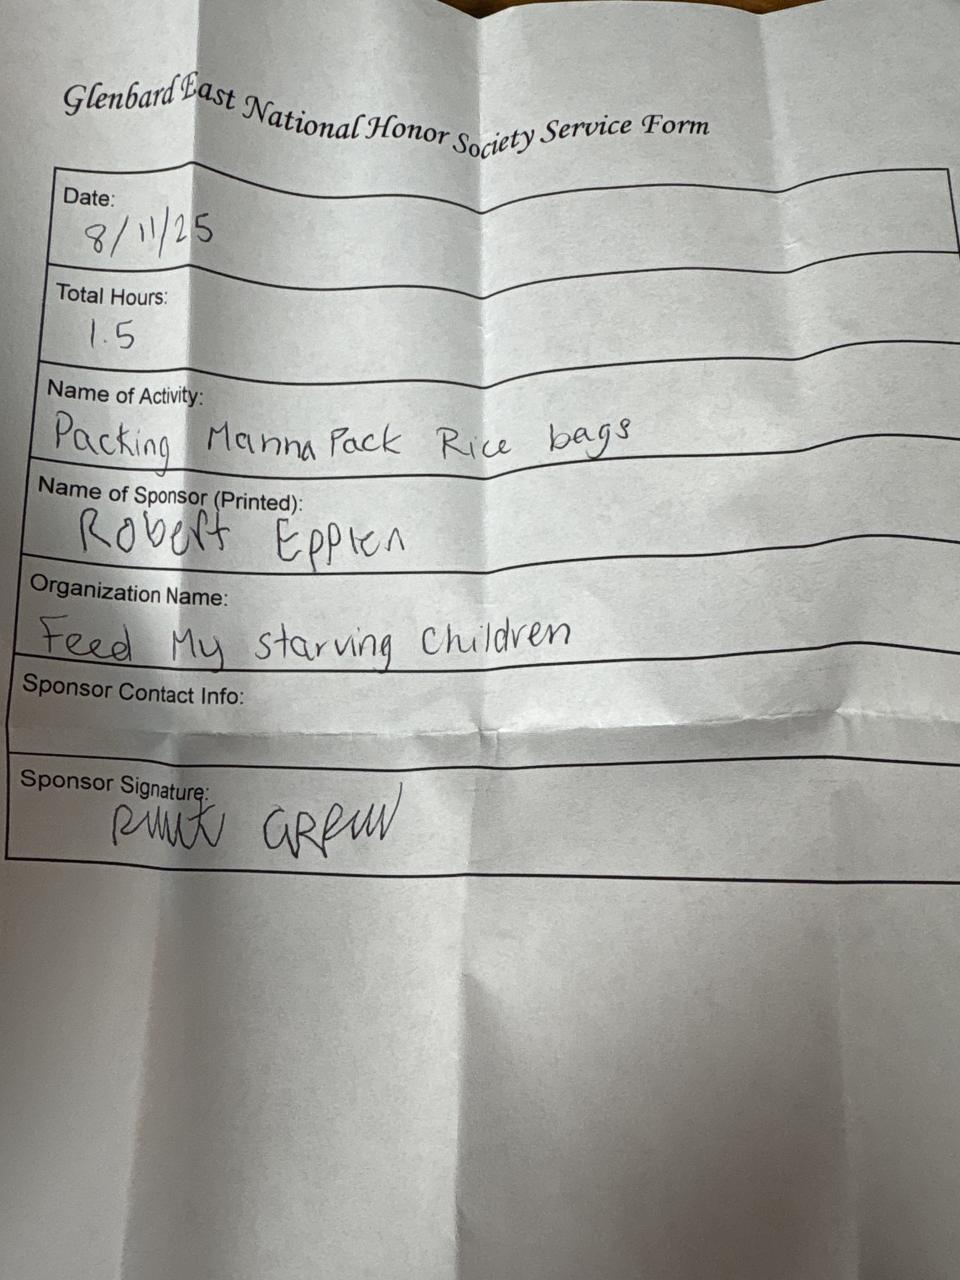 Glenbard East National Honor Society Service Form
Date:
8/11/25
Total Hours:
1.5
Name of Activity:
Packing Manna Pack Rice bags
Name of Sponsor (Printed):
Robert
Organization Name:
Feed My starving children
Sponsor Contact Info:
Sponsor Signature: